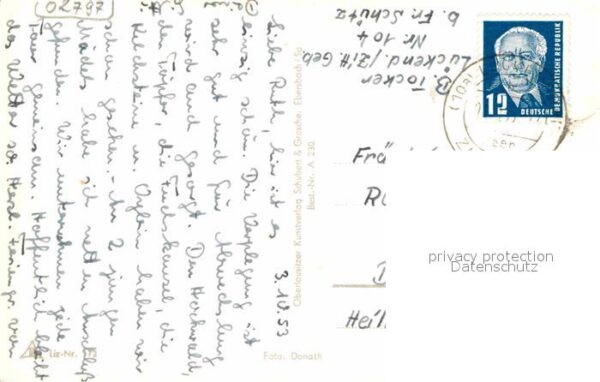 02797
3.10.53
Liebe Ruth, hier ist es
einzig schön. Die Verpflegung ist
sehr gut und für Abwechslung
wird auch gesorgt. Den Hochwald,
den Töpfer, die Fuchskanzel, die
Kelchsteine u. Oybin haben wir
schon gesehen. An 2 jungen
Mädels habe ich netten Anschluß
gefunden. Wir unternehmen jede
Tour gemeinsam. Hoffentlich bleibt
das Wetter so. Herzl. Feriengr. von
B. Töcker
Lückend./Zitt. Geb
Nr. 104
b. Fr. Schütz
Oberlausitzer Kunstverlag Schubert & Glosche, Ebersbach/Sa
Best.-Nr. A 230
Foto: Donath
Liz-Nr.
12
DEUTSCHE
DEMOKRATISCHE REPUBLIK
Frä
R
privacy protection
Datenschutz
Heil